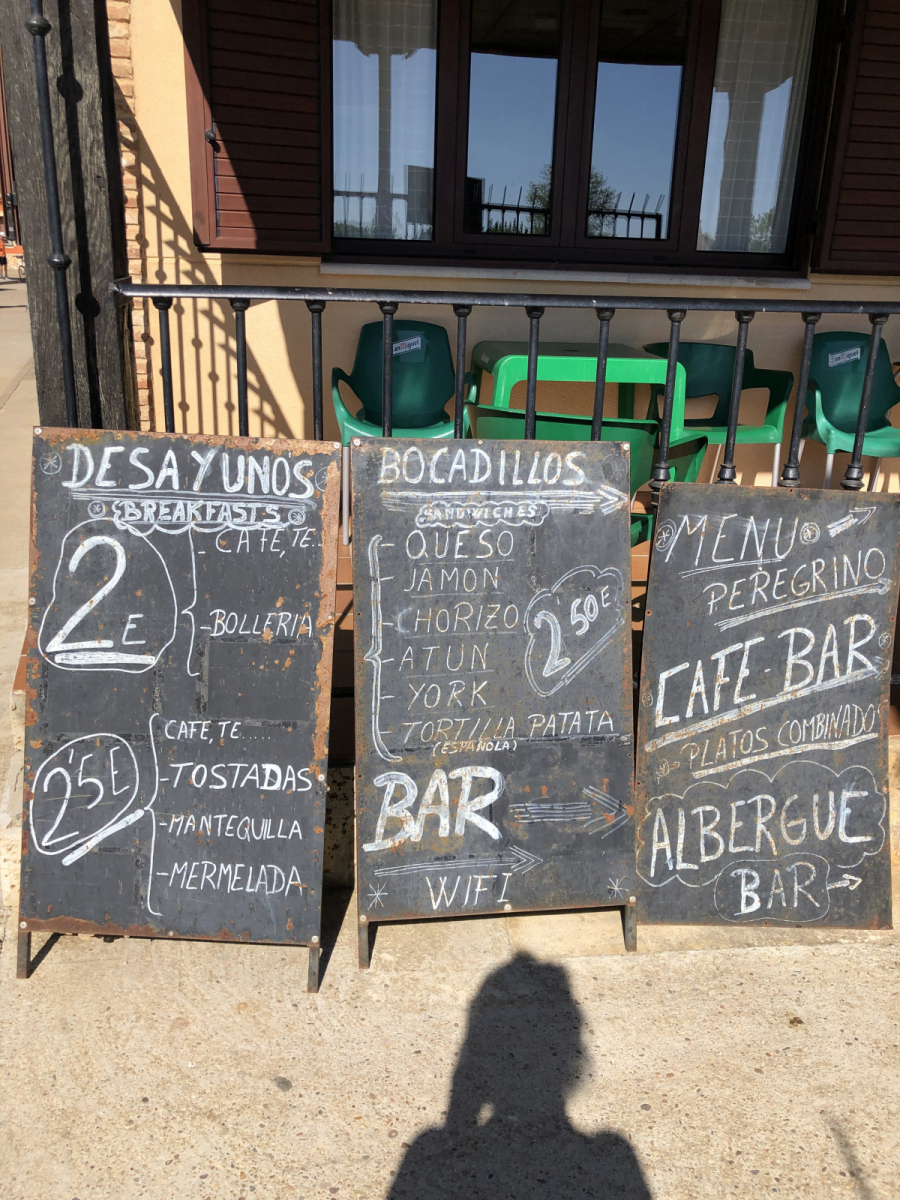 DESAYUNOS
BREAKFASTS
2E
- CAFE, TE..
-BOLLERIA
2'5E
CAFE, TE.....
-TOSTADAS
-MANTEQUILLA
-MERMELADA
BOCADILLOS
SANDWICHES
- QUESO
- JAMON
- CHORIZO
- ATUN
- YORK
- TORTILLA PATATA
(ESPAÑOLA)
2'50E
BAR
WIFI
MENU
PEREGRINO
CAFE-BAR
PLATOS COMBINADOS
ALBERGUE
BAR